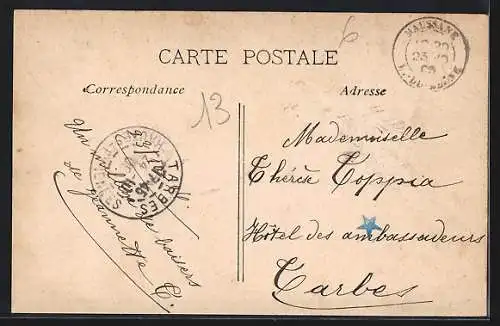 CARTE POSTALE
Correspondance
Adresse
6
13
MAUSSANE
23
TARBES
Un
de baisers
de Jeannette C.
Mademoiselle
Thérèse Toppia
Hôtel des ambassadeurs
Tarbes